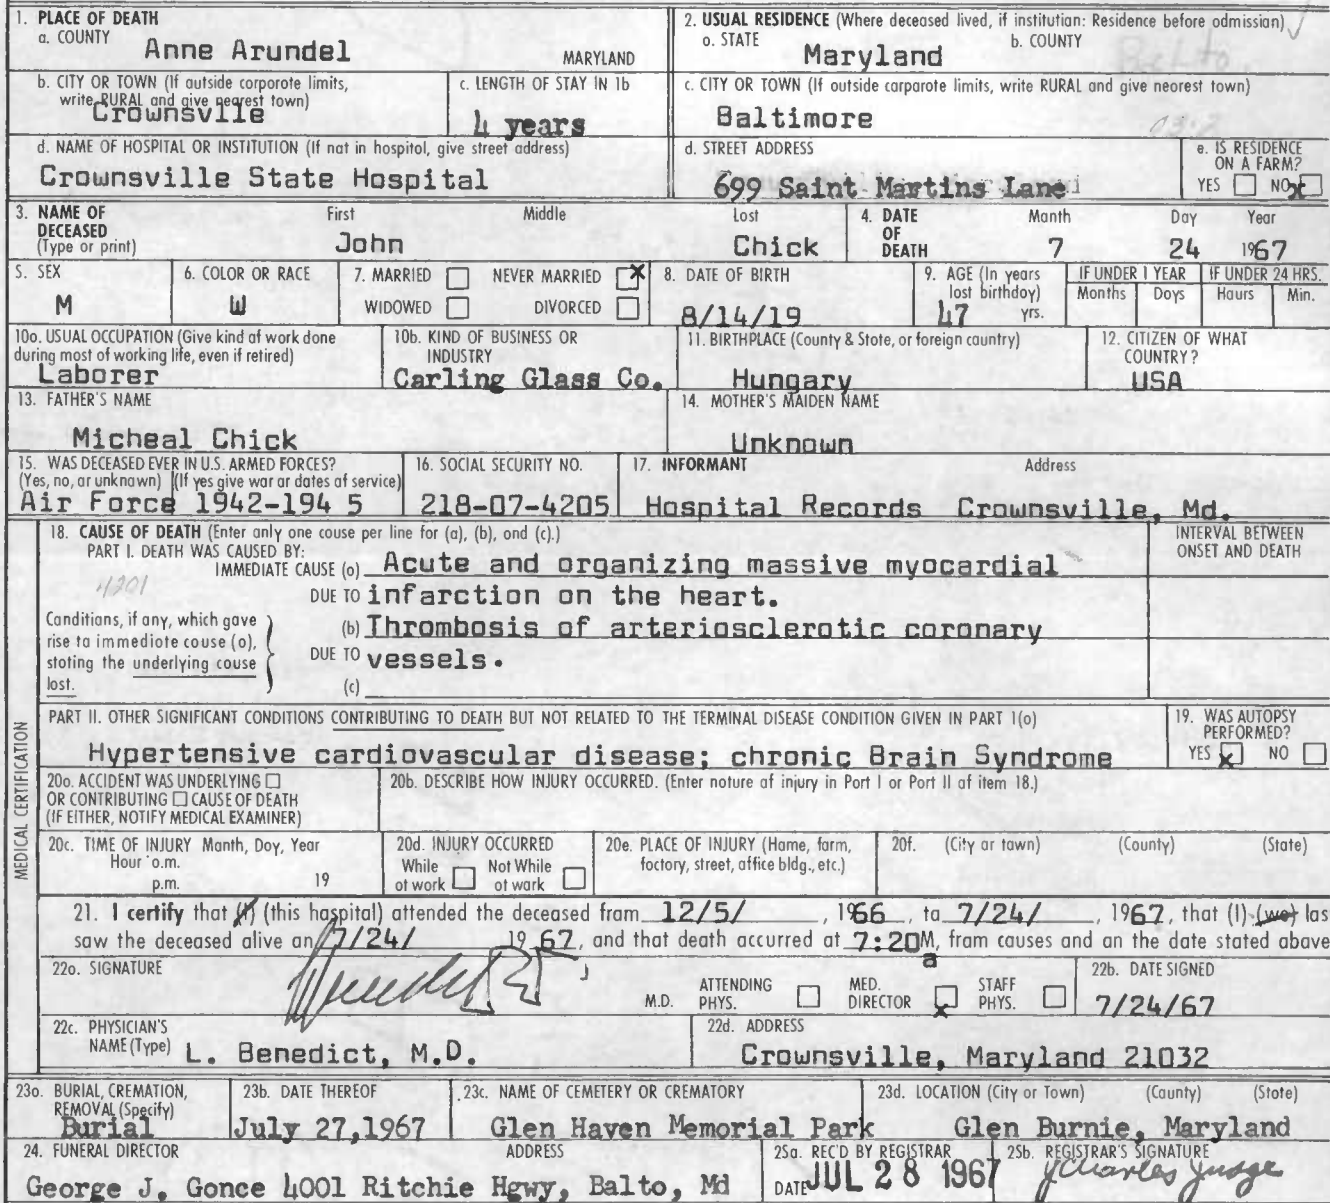 1. PLACE OF DEATH
a. COUNTY
Anne Arundel MARYLAND
2. USUAL RESIDENCE (Where deceased lived, if institution: Residence before admission)
a. STATE b. COUNTY
Maryland Balto.
b. CITY OR TOWN (If outside corporate limits, write RURAL and give nearest town)
Crownsvlle
c. LENGTH OF STAY IN 1b
4 years
c. CITY OR TOWN (If outside corporate limits, write RURAL and give nearest town)
Baltimore
d. NAME OF HOSPITAL OR INSTITUTION (If not in hospital, give street address)
Crownsville State Hospital
d. STREET ADDRESS
699 Saint Martins Lane
e. IS RESIDENCE ON A FARM?
YES NO x
3. NAME OF DECEASED (Type or print)
First Middle Last
John Chick
4. DATE OF DEATH
Month Day Year
7 24 1967
5. SEX
M
6. COLOR OR RACE
W
7. MARRIED NEVER MARRIED X
WIDOWED DIVORCED
8. DATE OF BIRTH
8/14/19
9. AGE (In years last birthday)
47 yrs.
IF UNDER 1 YEAR IF UNDER 24 HRS.
Months Days Hours Min.
10a. USUAL OCCUPATION (Give kind of work done during most of working life, even if retired)
Laborer
10b. KIND OF BUSINESS OR INDUSTRY
Carling Glass Co.
11. BIRTHPLACE (County & State, or foreign country)
Hungary
12. CITIZEN OF WHAT COUNTRY?
USA
13. FATHER'S NAME
Micheal Chick
14. MOTHER'S MAIDEN NAME
Unknown
15. WAS DECEASED EVER IN U.S. ARMED FORCES?
(Yes, no, or unknown) (If yes give war or dates of service)
Air Force 1942-194 5
16. SOCIAL SECURITY NO.
218-07-4205
17. INFORMANT Address
Hospital Records Crownsville, Md.
MEDICAL CERTIFICATION
18. CAUSE OF DEATH (Enter only one cause per line for (a), (b), and (c).)
PART I. DEATH WAS CAUSED BY:
IMMEDIATE CAUSE (a) Acute and organizing massive myocardial
4201
DUE TO infarction on the heart.
Conditions, if any, which gave rise to immediate cause (a), stating the underlying cause last.
(b) Thrombosis of arteriosclerotic coronary
DUE TO vessels.
(c)
INTERVAL BETWEEN ONSET AND DEATH
PART II. OTHER SIGNIFICANT CONDITIONS CONTRIBUTING TO DEATH BUT NOT RELATED TO THE TERMINAL DISEASE CONDITION GIVEN IN PART I(a)
Hypertensive cardiovascular disease; chronic Brain Syndrome
19. WAS AUTOPSY PERFORMED?
YES x NO
20a. ACCIDENT WAS UNDERLYING
OR CONTRIBUTING CAUSE OF DEATH
(IF EITHER, NOTIFY MEDICAL EXAMINER)
20b. DESCRIBE HOW INJURY OCCURRED. (Enter nature of injury in Part I or Part II of item 18.)
20c. TIME OF INJURY Month, Day, Year
Hour a.m.
p.m. 19
20d. INJURY OCCURRED
While at work Not While at work
20e. PLACE OF INJURY (Home, farm, factory, street, office bldg., etc.)
20f. (City or town) (County) (State)
21. I certify that (I) (this hospital) attended the deceased from 12/5/, 1966, to 7/24/, 1967, that (I) (we) las
saw the deceased alive on 7/24/ 19 67, and that death occurred at 7:20 a M, from causes and on the date stated above
22a. SIGNATURE
M.D. ATTENDING PHYS. MED. DIRECTOR x STAFF PHYS.
22b. DATE SIGNED
7/24/67
22c. PHYSICIAN'S NAME (Type) L. Benedict, M.D.
22d. ADDRESS
Crownsville, Maryland 21032
23a. BURIAL, CREMATION, REMOVAL (Specify)
Burial
23b. DATE THEREOF
July 27,1967
23c. NAME OF CEMETERY OR CREMATORY
Glen Haven Memorial Park
23d. LOCATION (City or Town) (County) (State)
Glen Burnie, Maryland
24. FUNERAL DIRECTOR ADDRESS
George J. Gonce 4001 Ritchie Hgwy, Balto, Md
25a. REC'D BY REGISTRAR
DATE JUL 28 1967
25b. REGISTRAR'S SIGNATURE
J Charles Judge